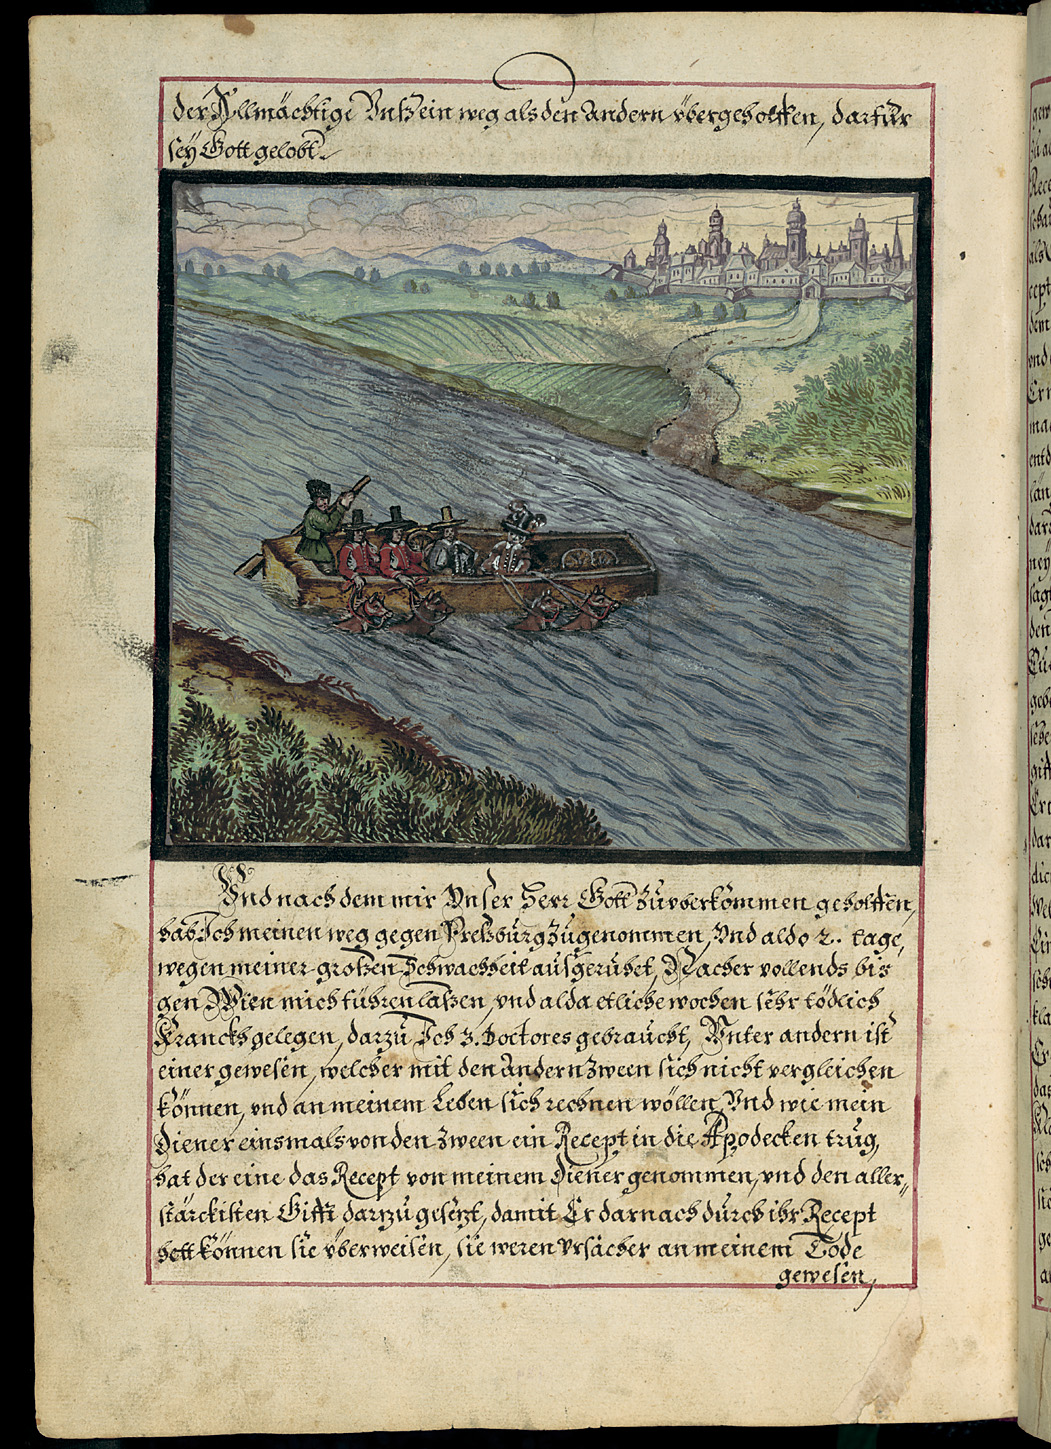 der Allmächtige Vnß ein weg als den Andern vbergeholffen, darfür
seÿ Gott gelobt.
Vnd nach dem mir Vnser Herr Gott Zu vberkommen geholffen,
hab Ich meinen weg gegen Preßburg Zugenommen, Vnd aldo 2. tage,
wegen meiner großen Schwachheit ausgeruhet, Nacher vollends bis
gen Wien mich führen laßen, vnd alda etliche wochen sehr tödlich
Kranckh gelegen, darzu Ich 3. Doctores gebraucht, Vnter andern ist
einer gewesen, welcher mit den Andern Zween sich nicht vergleichen
können, vnd an meinem Leben sich rechnen wöllen, Vnd wie mein
Diener einsmals von den Zween ein Recept in die Apodecken trug,
hat der eine das Recept von meinem Diener genommen, vnd den aller„
stärckisten Gifft darzu gesetzt, damit Er darnach durch ihr Recept
hett können sie vberweisen, sie weren Vrsacher an meinem Tode
gewesen,